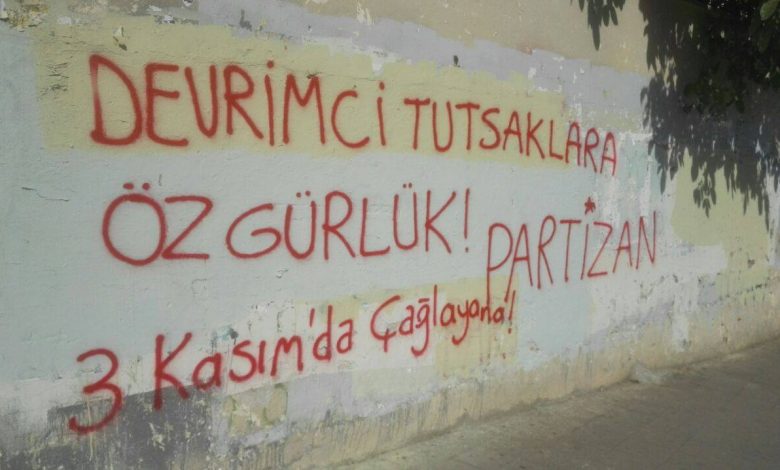 DEVRİMCİ TUTSAKLARA
ÖZGÜRLÜK! PARTİZAN
3 Kasım'da Çağlayana!